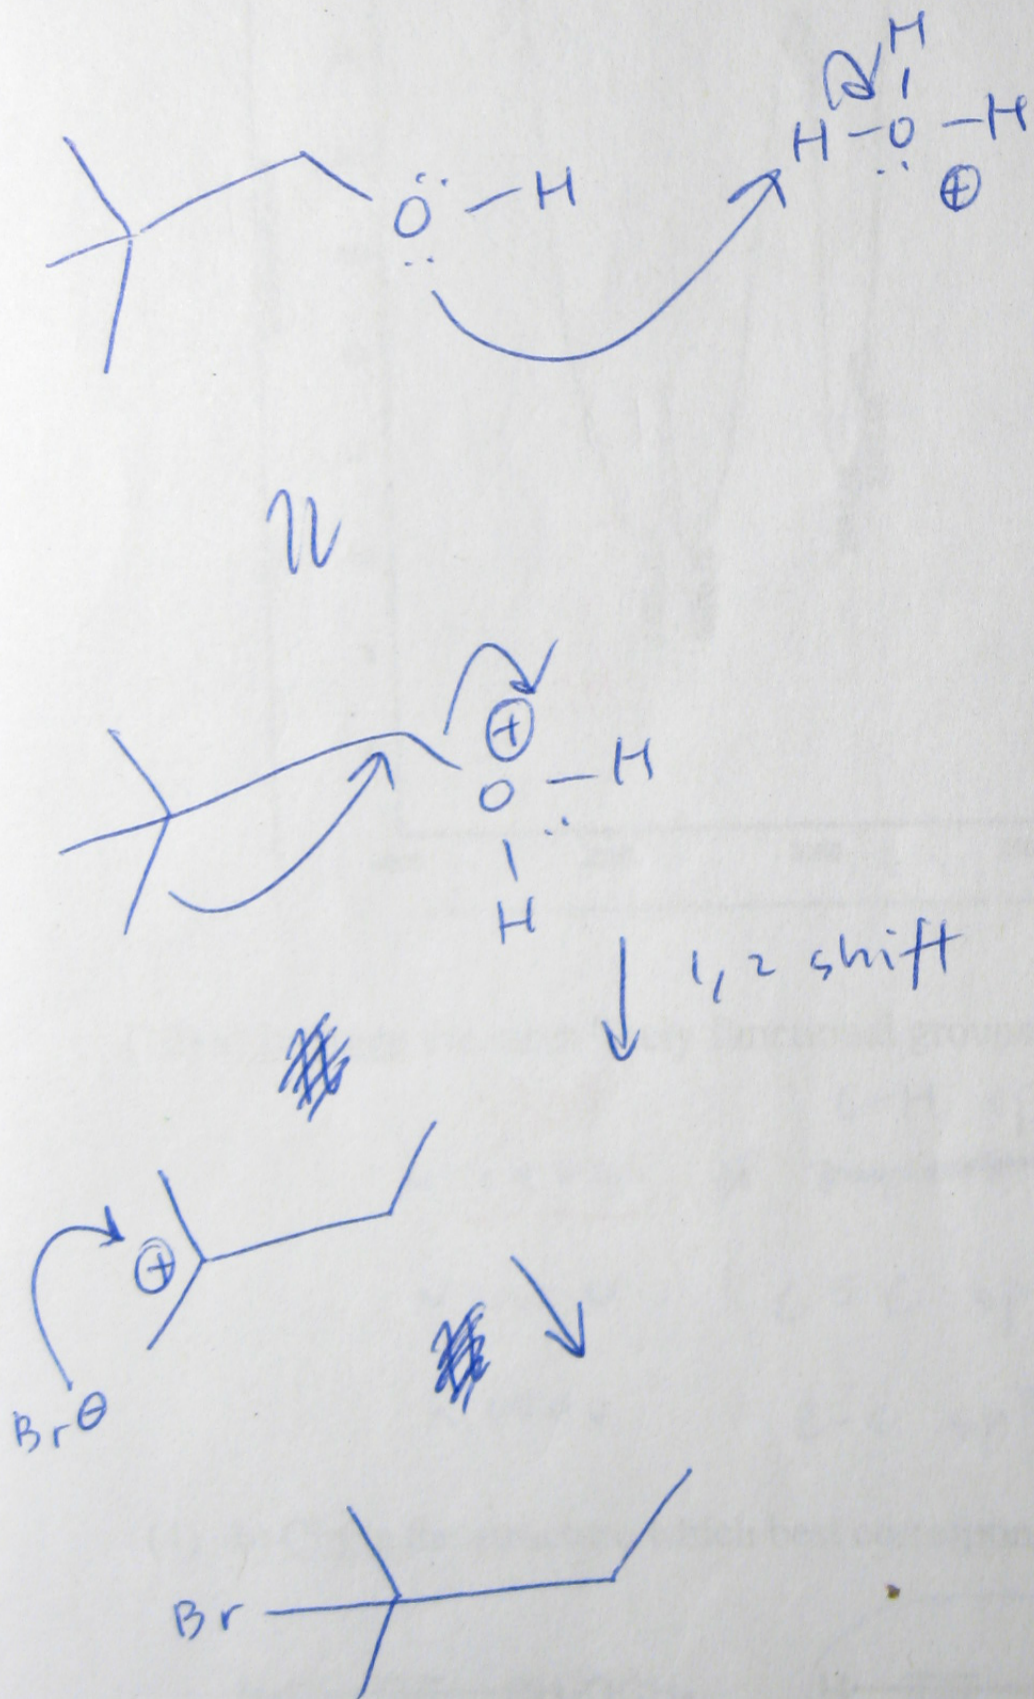 H
H - O - H
⊕
O - H
⊕
O - H
H
1,2 shift
⊕
Br⊖
Br